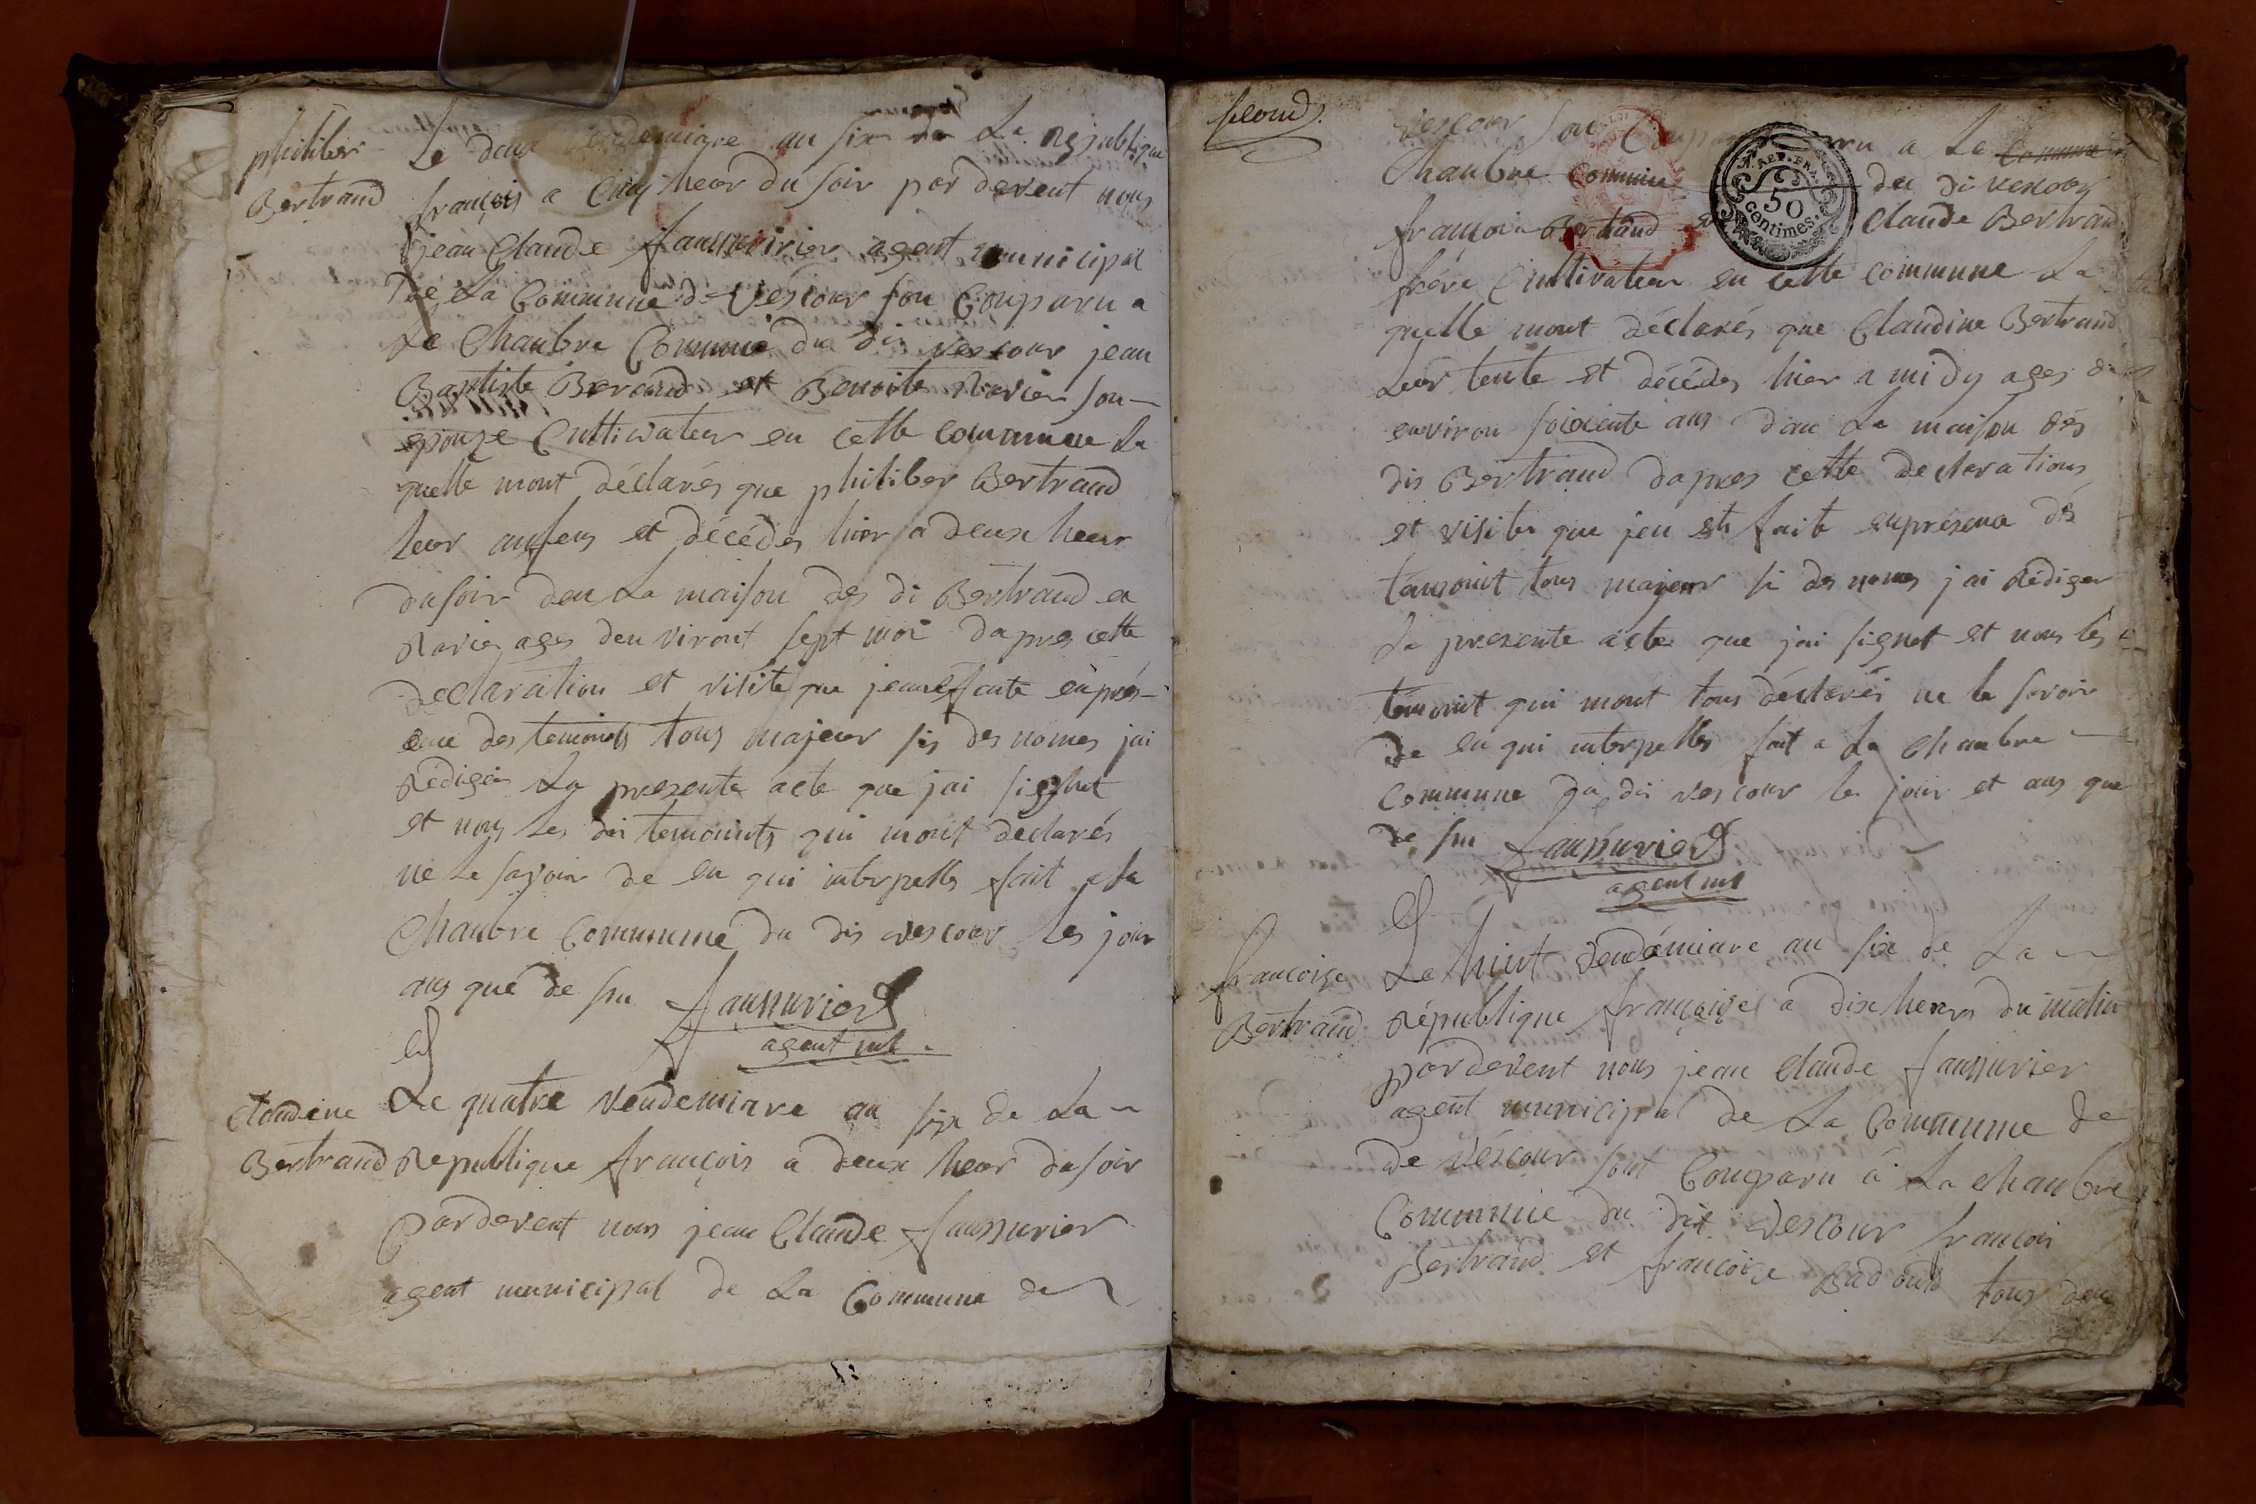 philiber
Bertrand
Le deux vendemiare an six de La republique
françois a cinq heor du soir por devent nous
jean Claude faussurier agent municipal
de La Commune de vescour son Comparu a
La Chanbre Commune du di vescour jean
Baptiste Bertrand et Benoite Ravier son
epouze Cultivateur en cette commune La
quelle mont déclarés que philiber Bertrand
leor anfens et décédes hier a deux heur
du soir den La maison des di Bertrand et
Ravier ages denviront sept moi dapres cette
declaration et visite que jeanes faite enprés-
ence des temoints tous majeur sis des nomes jai
Rédigér La presente acte que jai signet
et nous les dis temoints qui mont déclarés
ne le savoir de en qui interpelles fait a la
Chanbre Commune du dis vescour les jour
ans que de su faussurier
agent ml.
Claudine
Bertrand
Le quatre vendemiare an six de La
Republique françois a deux heor du soir
pordevent nous jean Claude faussurier
agent municipal de La Commune de
second.
vescour son Comparu a La Commune
Chanbre Commune du di vescour
françois Bertrand et Claude Bertrand
frére Cultivateur en cette commune La
quelle mont déclarés que Claudine Bertrand
Leur tente et décédes hier a midy ages d
environ soixente ans dan La maison dés
dis Bertrand dapres cette declerations
et visiter que jen et faite enpresence dés
temoint tous majeur si des nomes jai Rédiger
La presente acte que jai signet et nous les
témoint qui mont tous déclarés ne le savoir
de en qui interpelles fait a La Chanbre
Commune du dis vescour les jour et ans que
de su faussurier
agent ml
françoise
Bertrand
Le huit vendémiare an six de La
République françoise a dix heurs du matin
pordevent nous jean Claude faussurier
agent municipal de La Commune de
de véscour sont Comparu á La chanbre
Commune du dit vescour françois
Bertrand et françoise Badoud tous deu
REP. FRA.
50
centimes.